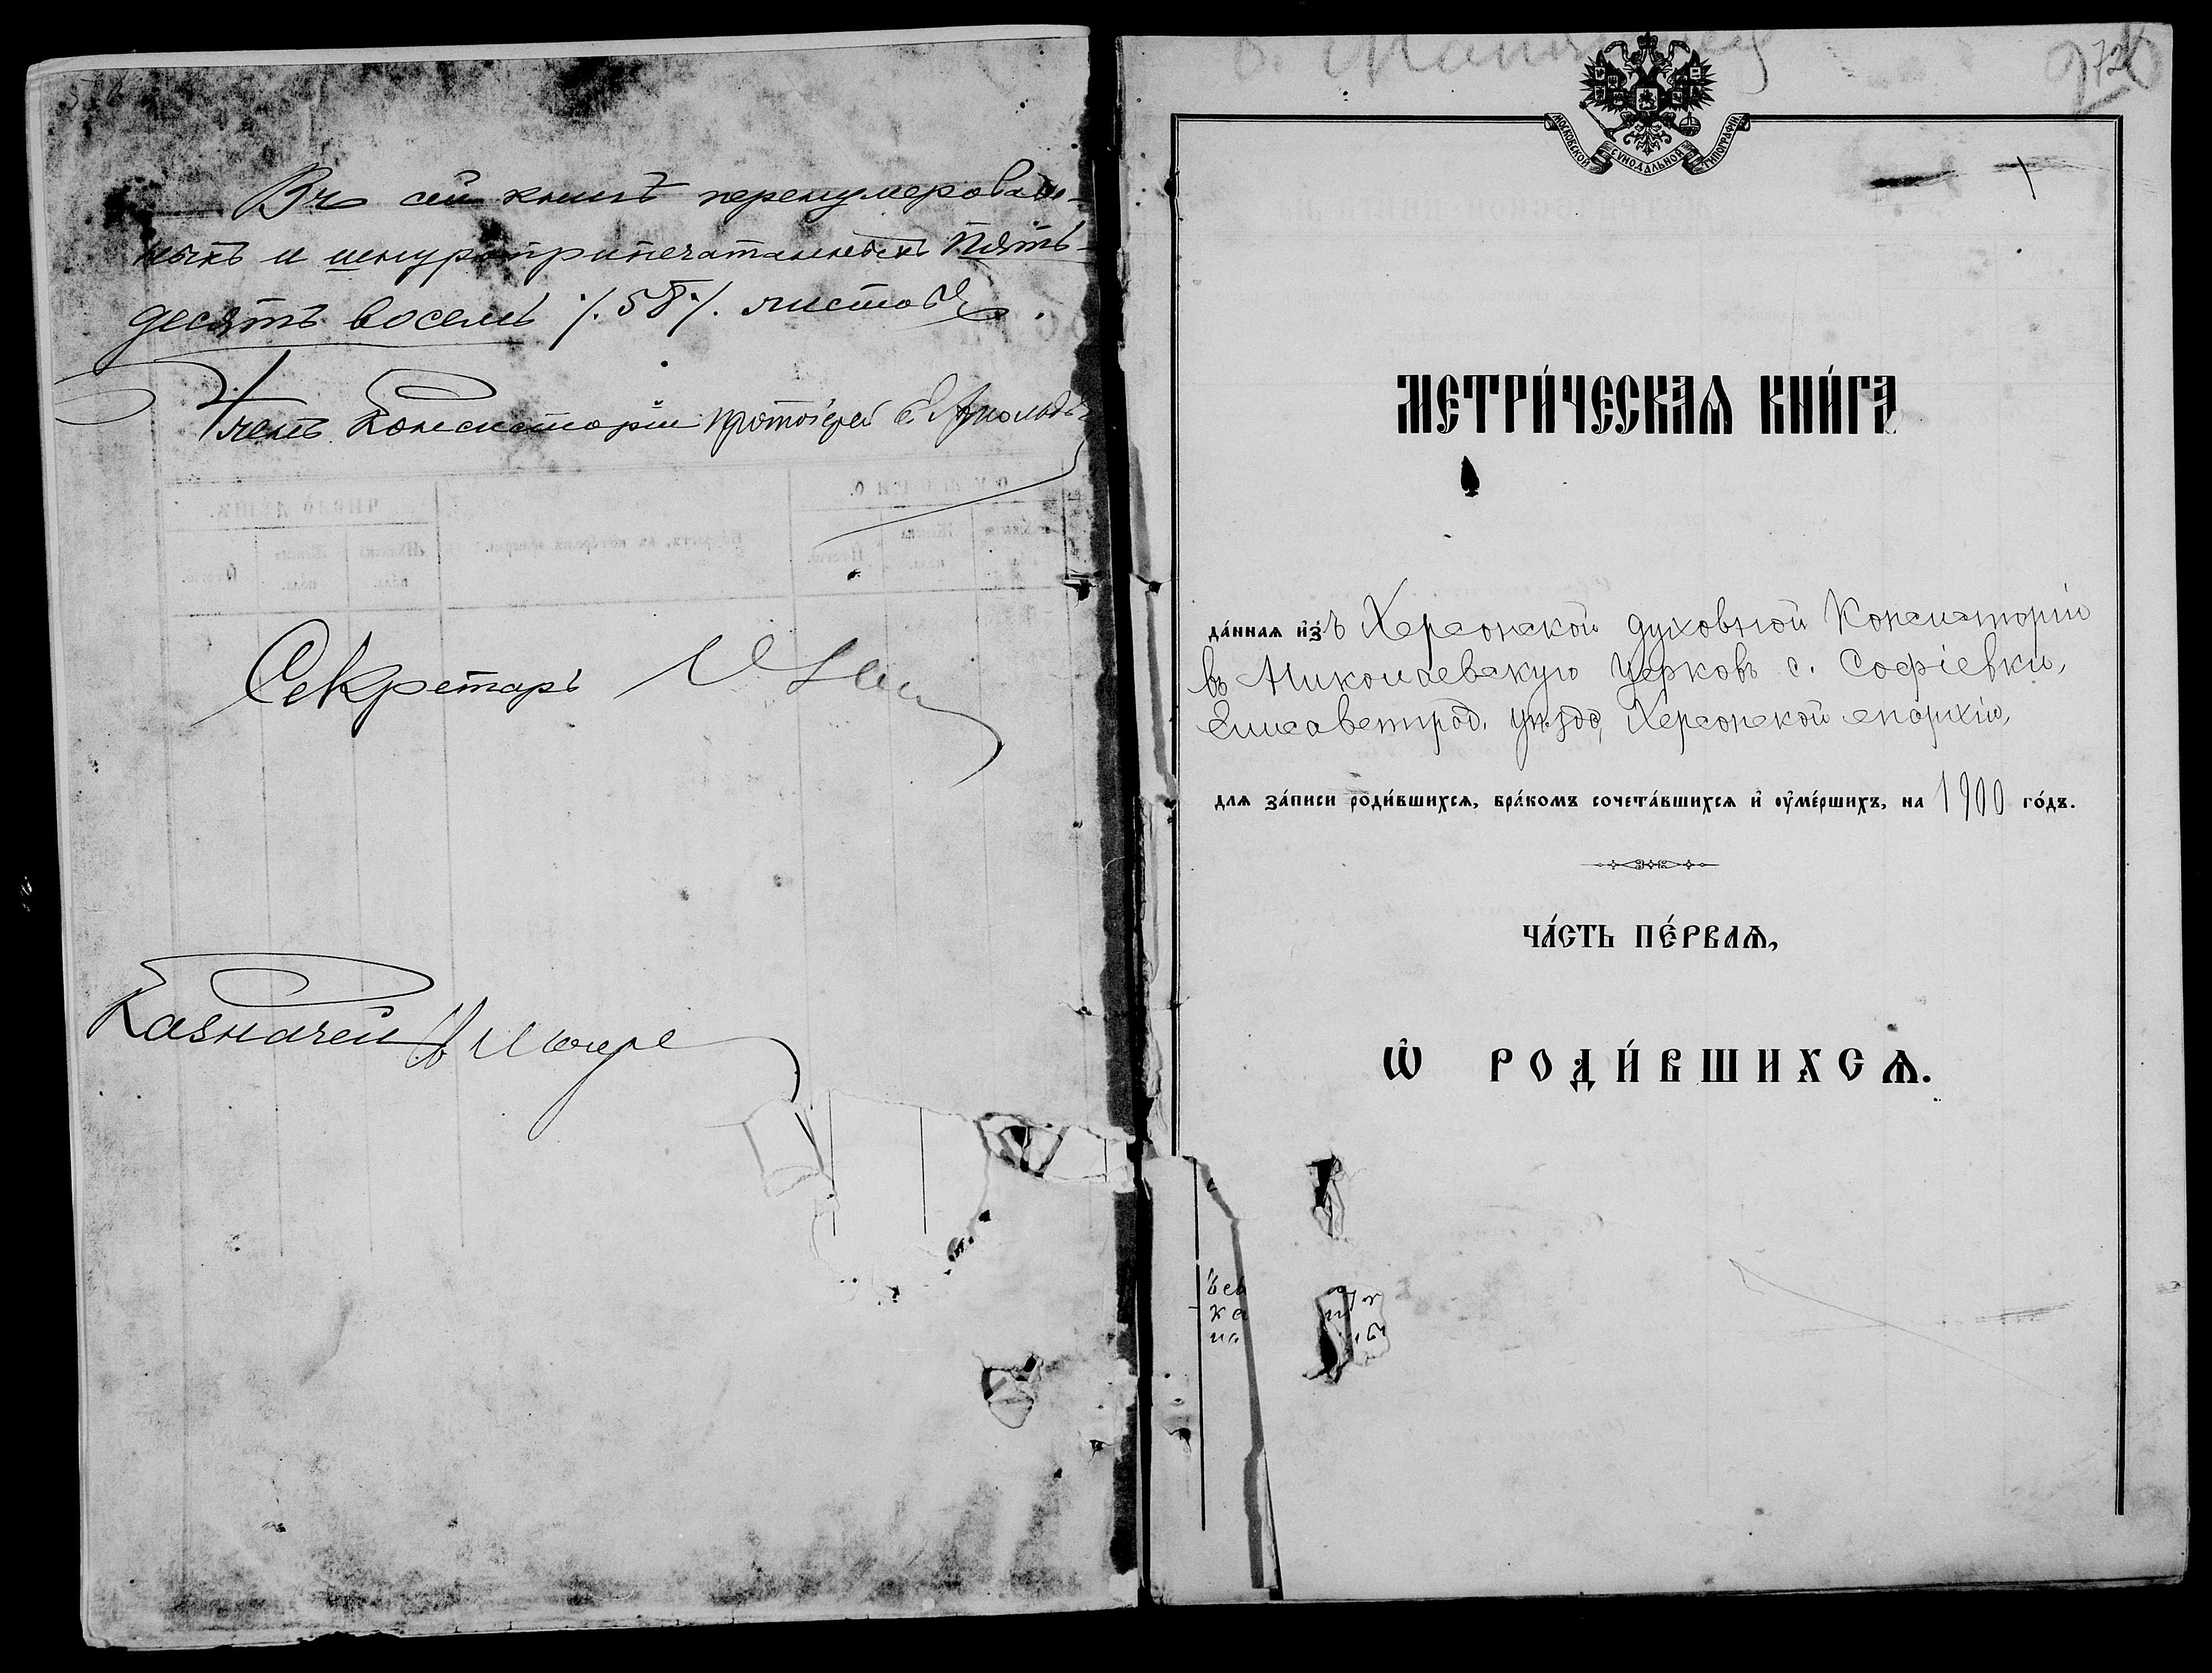 Въ сей книгѣ перенумерован-
ныхъ и шнуроприпечатанныхъ пять-
десятъ восемь /.58/. листовъ.
Членъ Консисторіи протоіерей
Секретарь
Казначей
МОСКОВСКОЙ СѴНОДАЛЬНОЙ ТИПОГРАФІИ
МЕТРИ́ЧЕСКАѦ КНИ́ГА
да́ннаѧ и҆зъ Херсонской духовной Консисторіи
въ Николаевскую церковь с. Софіевки,
Елисаветгрод. уѣзда, Херсонской епархіи,
длѧ за́писи роди́вшихсѧ, бра́комъ сочета́вшихсѧ и҆ ѹ҆ме́ршихъ, на 1900 го́дъ.
ЧА́СТЬ ПЕ́РВАѦ,
Ѡ҆ РОДИ́ВШИХСѦ.